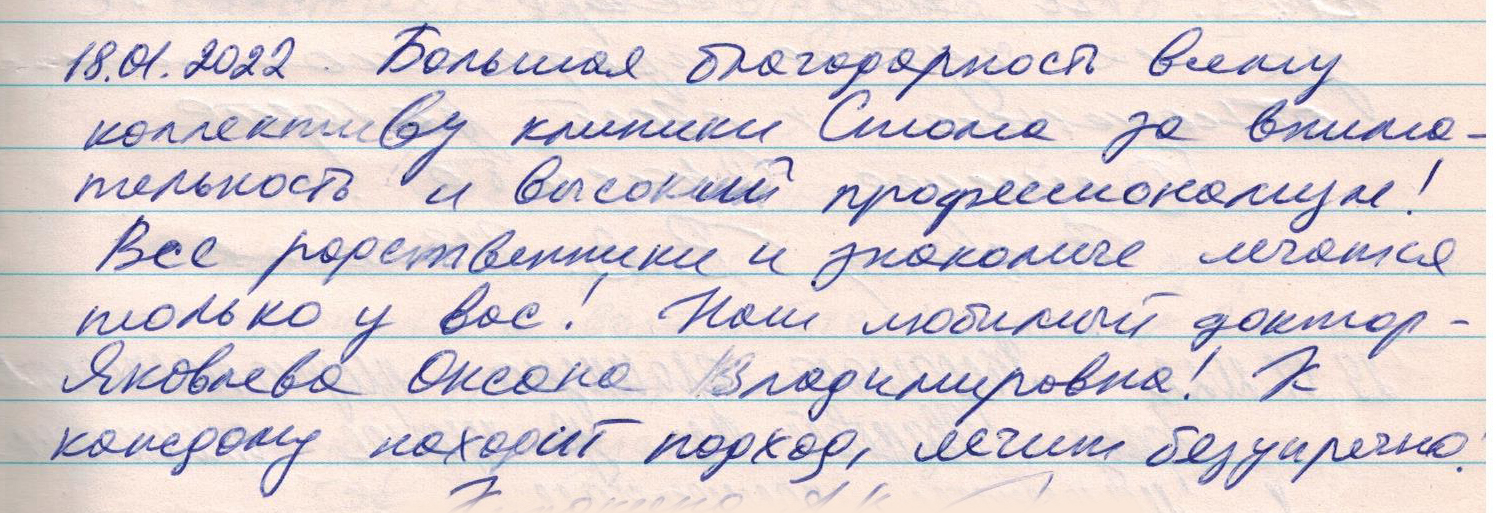 18.01.2022. Большая благодарность всему
коллективу клиники Стома за внима-
тельность и высокий профессионализм!
Все родственники и знакомые лечатся
только у вас! Наш любимый доктор-
Яковлева Оксана Владимировна! К
каждому находит подход, лечит безупречно!